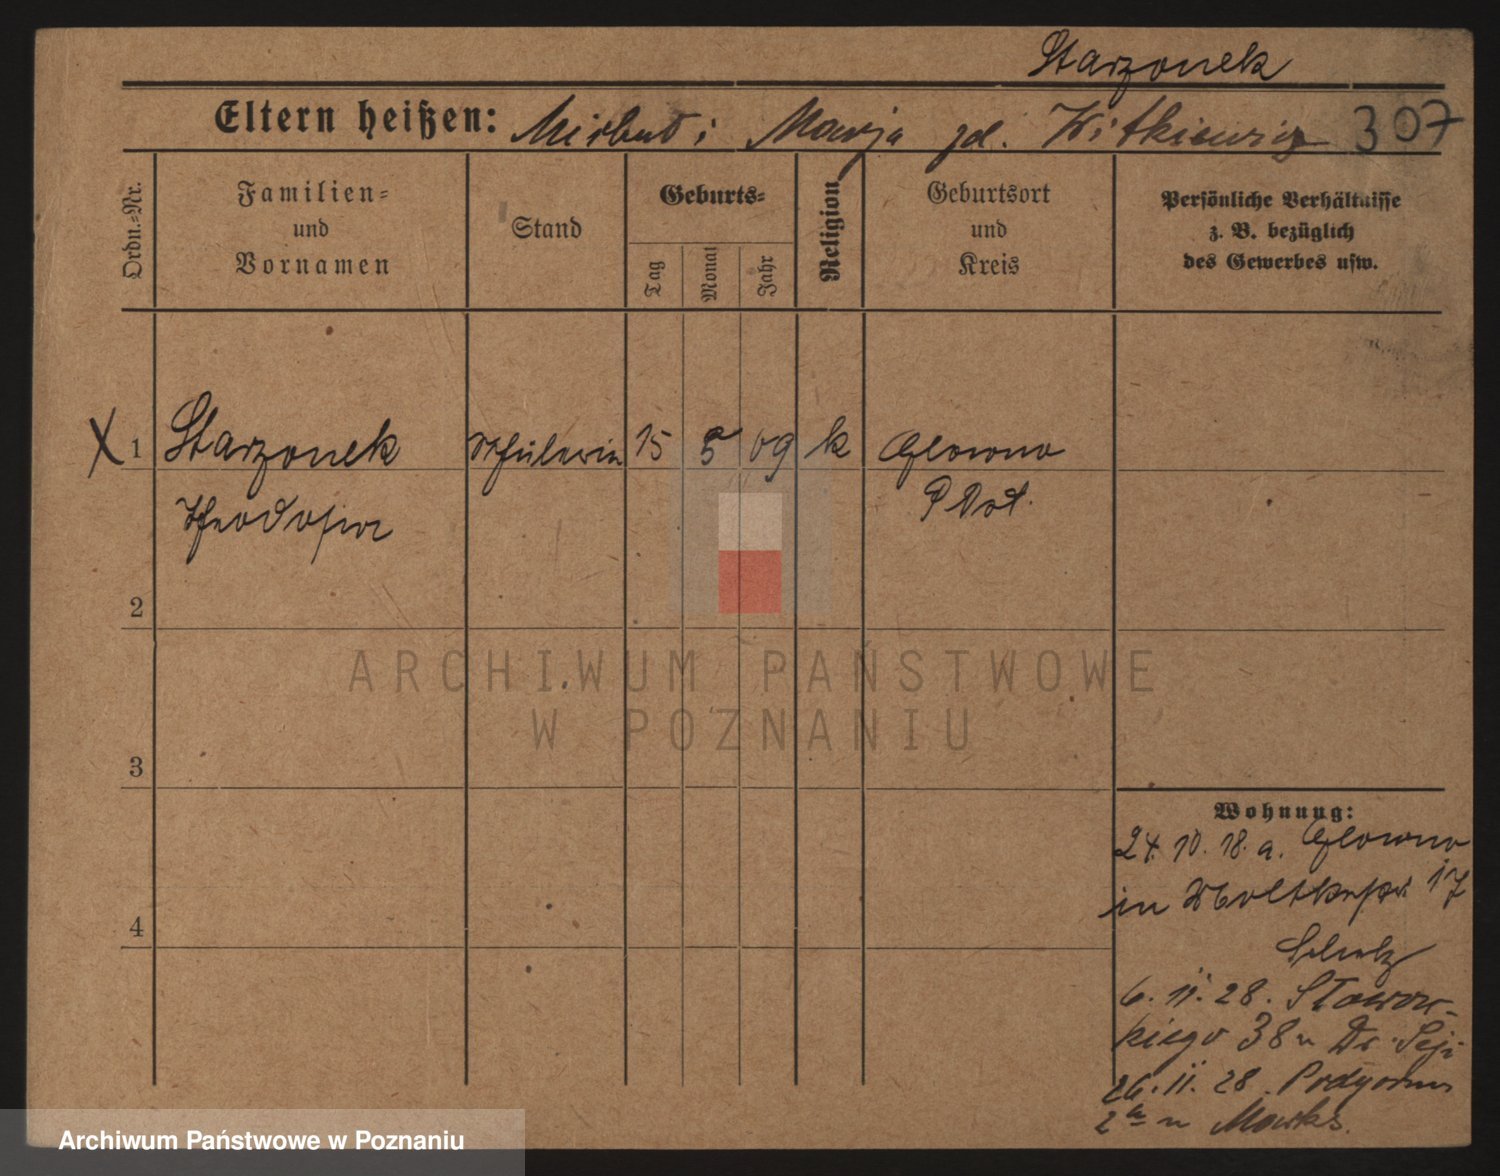 Starzonek
Eltern heißen: Marja zd. Witkiewicz 307
Ordn.=Nr.
Familien=
und
Vornamen
Stand
Geburts=
Tag
Monat
Jahr
Religion
Geburtsort
und
Kreis
Persönliche Verhältnisse
z. B. bezüglich
des Gewerbes usw.
X 1 Starzonek Schülerin 15 5 09 k Glowno
Theodosia P. Ost.
2
3
4
ARCHIWUM PAŃSTWOWE
W POZNANIU
Wohnung:
24. 10. 18. a. Glowno
in Moltkestr. 17
6. 11. 28. Słowac-
kiego 38 u Dr.
26. 11. 28. Podgórna
2a u
Archiwum Państwowe w Poznaniu